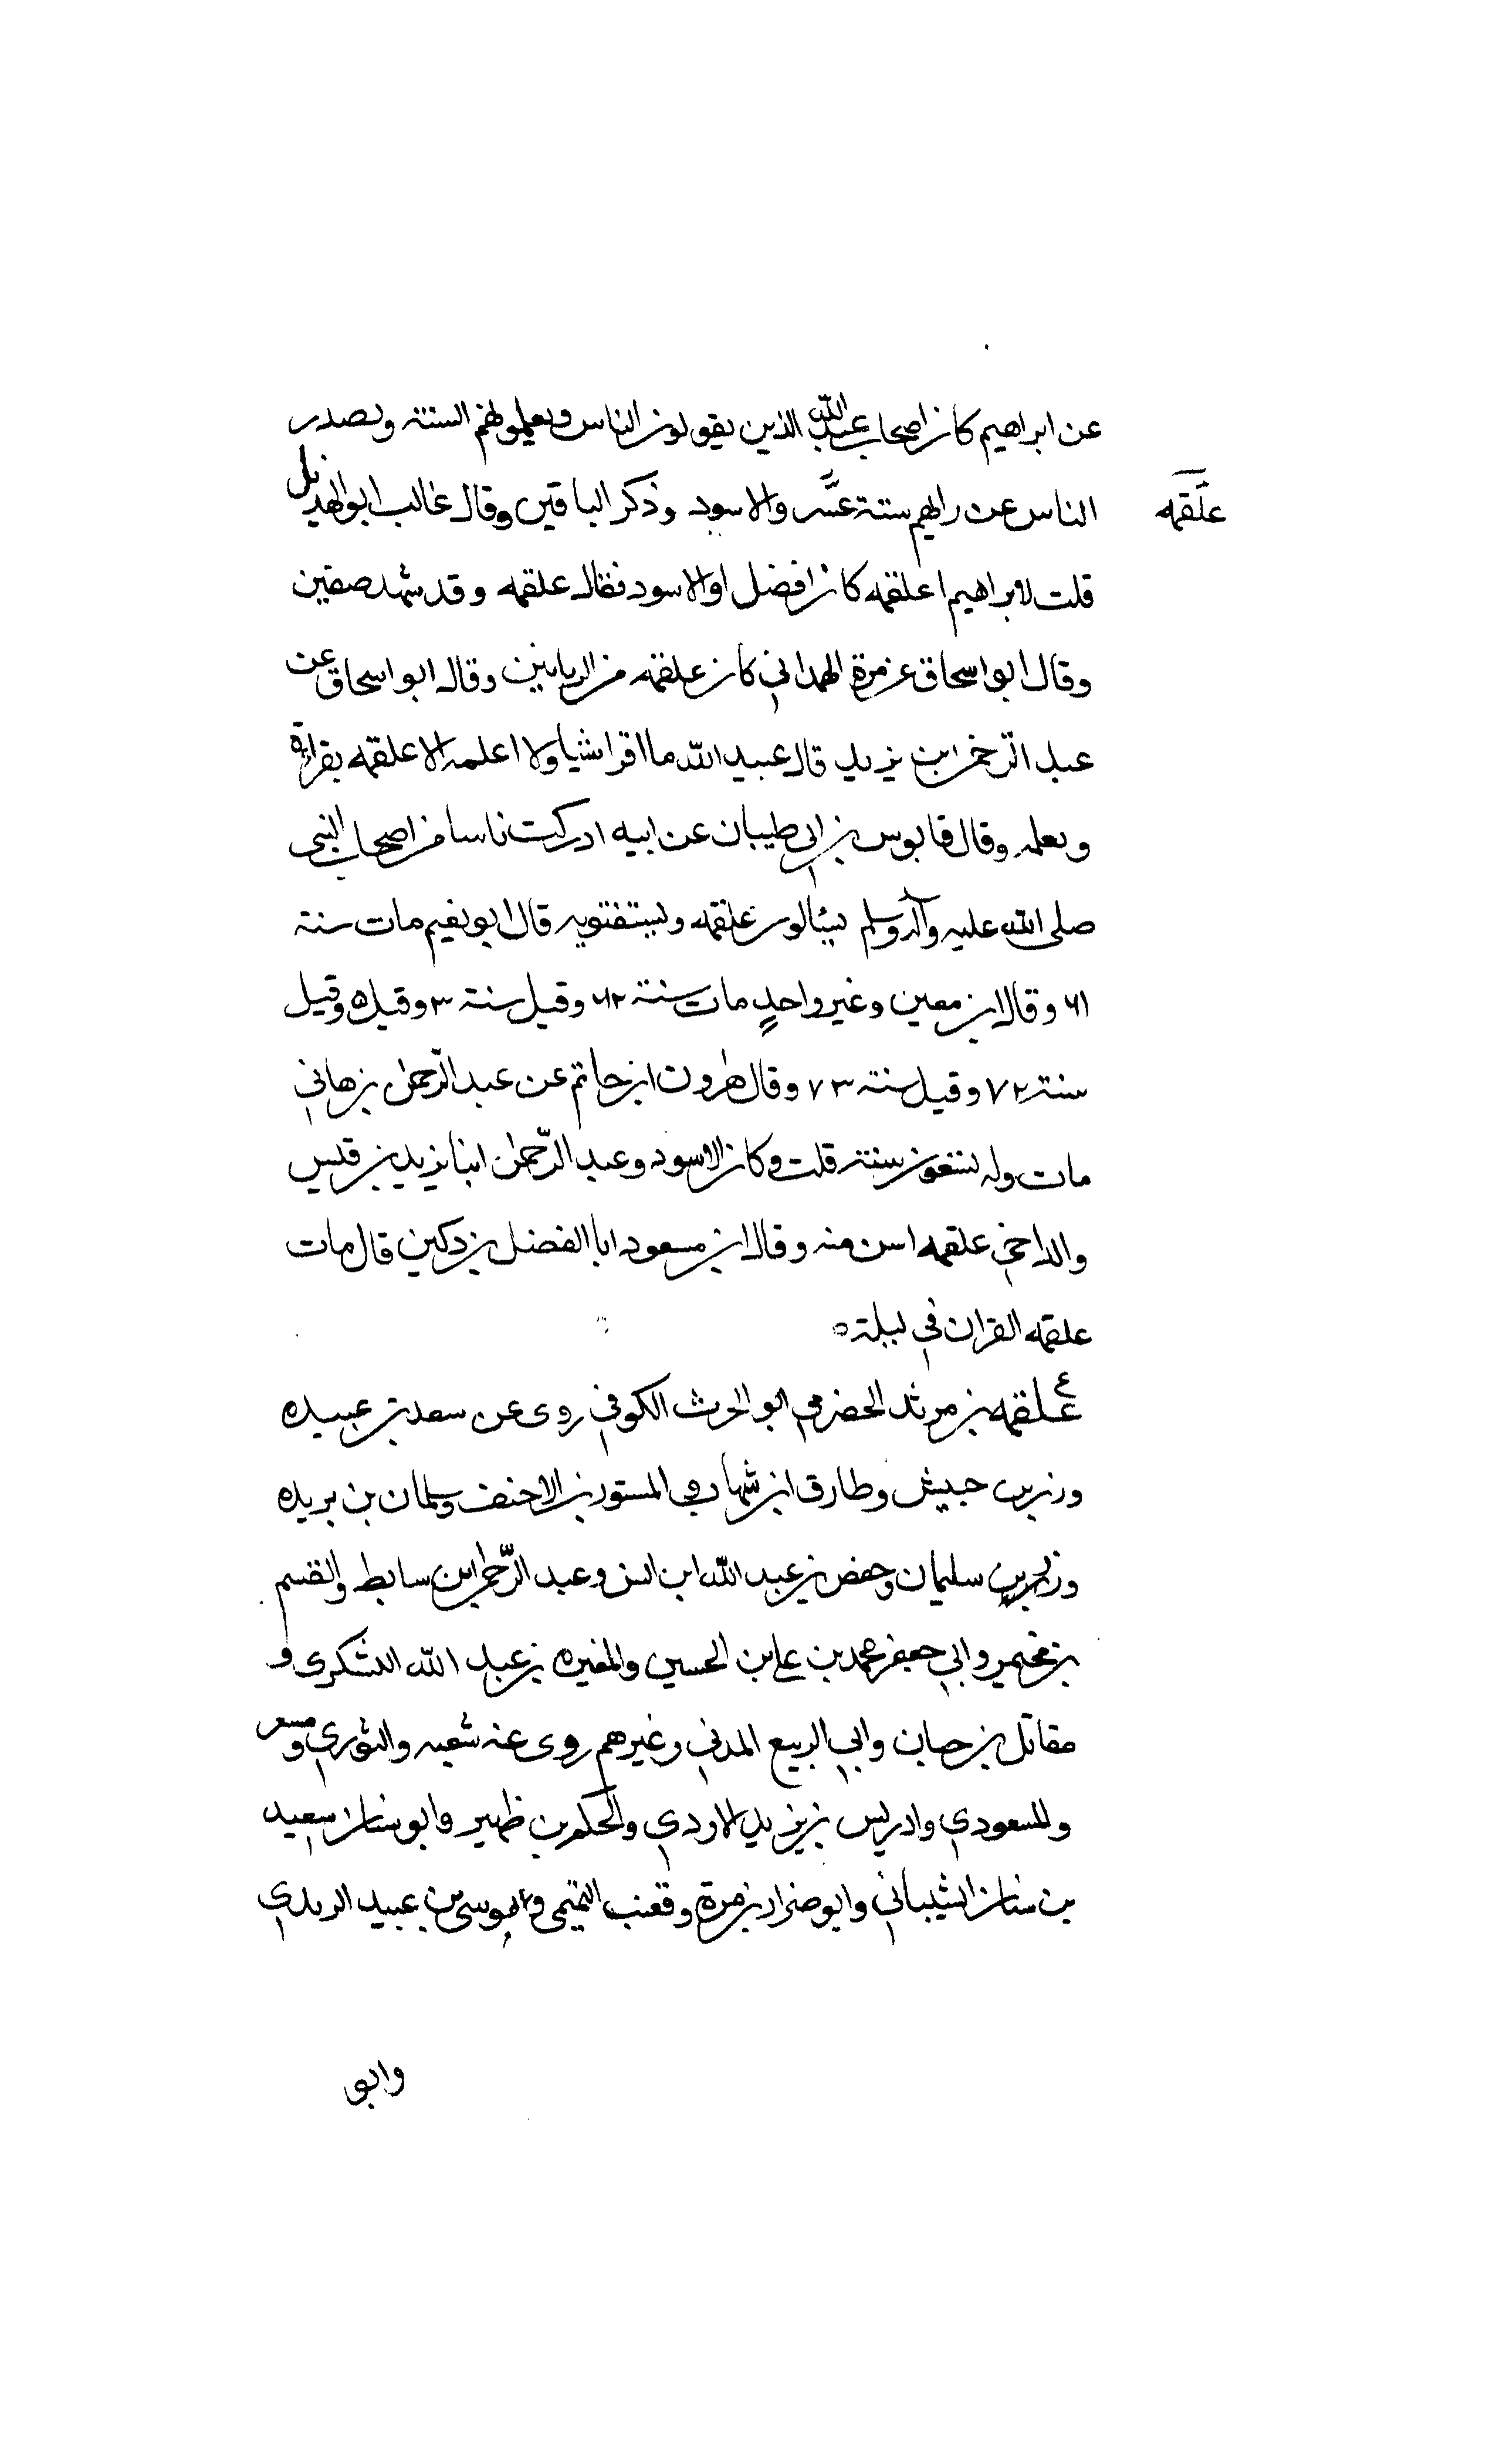 عن ابراهيم كان اصحاب عبد الله الذين يقولون الناس ويعلمونهم السنة ويصدر
الناس عن رايهم ستة عشر والاسود وذكر الباقين وقال غالب ابو الهذيل
علقمه
قلت لابراهيم اعلقمه كان افضل او الاسود فقال علقمه وقد شهد صفين
وقال ابو اسحاق عن مرة الهمداني كان علقمه من الربانين وقال ابو اسحاق عن
عبد الرحمن ابن يزيد قال عبيد الله ما اقرا شيا ولا اعلمه الا علقمه يقراه
ويعلمه وقال قابوس بن ابي طبيان عن ابيه ادركت ناسا من اصحاب النبي
صلى الله عليه وآله وسلم يسئالون علقمه ويستفتويه قال ابو نعيم مات سنة
٦١ وقال ابن معين وغير واحد مات سنة ٦٢ وقيل سنة ٣ وقيل ٥ وقيل
سنة ٧٢ وقيل سنة ٧٣ وقال هرون ابن حاتم عن عبد الرحمن بن هاني
مات وله تسعون سنة قلت وكان الاسود وعبد الرحمن ابنا يزيد بن قيس
والد اخي علقمه اسن منه وقال ابن مسعود ابا الفضل بن دكين قال مات
علقمه القران في ليلة ه
ع
علقمه بن مرثد الحضرمي ابو الحرث الكوفي روى عن سعد بن عبيده
وزر بن حبيش وطارق ابن شهاب والمستورد بن الاحنف وسلمان بن بريده
و سليمان وحفص بن عبد الله ابن انس وعبد الرحمن ابن سابط والقسم
بن مخيمر وابي جعفر محمد بن علي بن الحسين والمغيره بن عبد الله اليشكري و
مقاتل بن حيان وابي الربيع المدني وغيرهم روى عنه شعبه والثوري ومسعر
والمسعودي وادريس بن يزيد الاودي والحكم بن ظهير وابو سنان سعيد
بن سنان الشيباني وابو ضرار بن مرة وقعنب التميمي و موسى بن عبيد الربدي
وابو